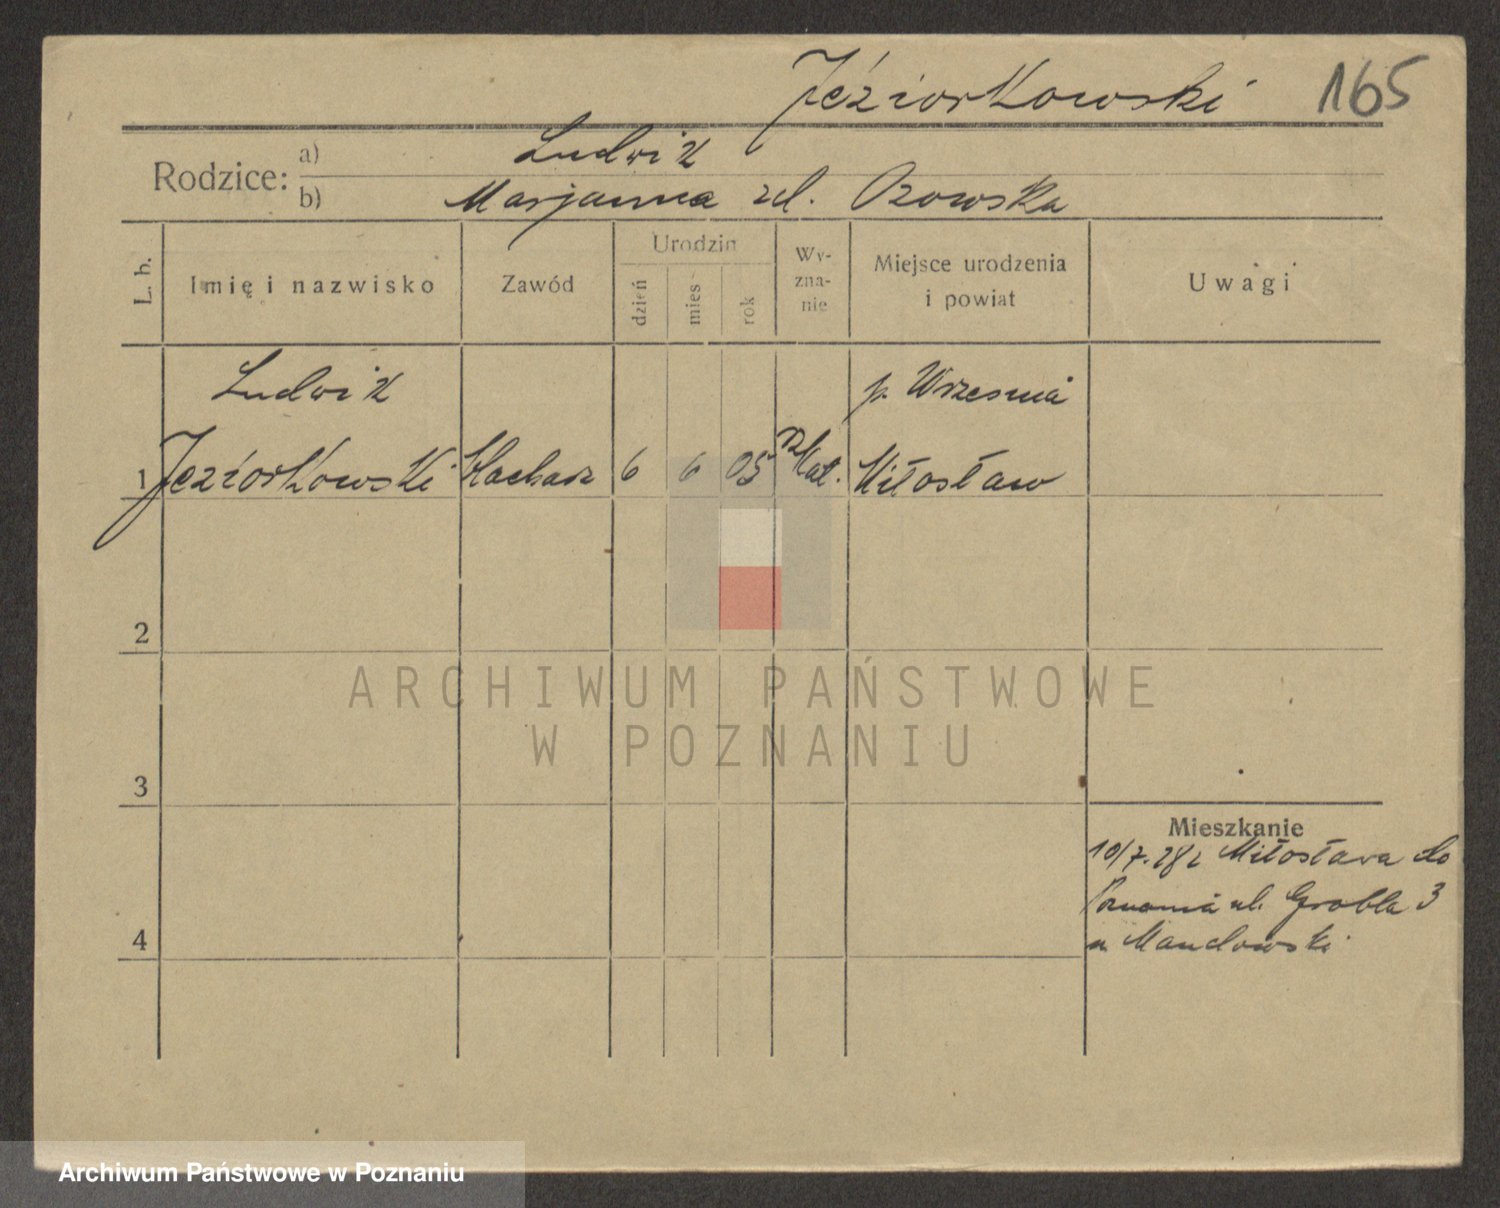 Jeziorkowski 165
Rodzice: a) Ludwik
b) Marjanna zd. Ozowska
L. b. Imię i nazwisko Zawód Urodzin dzień mies rok Wyznanie Miejsce urodzenia i powiat Uwagi
Ludwik p. Wrzesnia
1 Jeziorkowski 6 6 05 rz kat. Miłosław
2
3
4
Mieszkanie
10/7.28 z Miłosława do
Poznania ul. Grobla 3
u Mandowski
ARCHIWUM PAŃSTWOWE
W POZNANIU
Archiwum Państwowe w Poznaniu